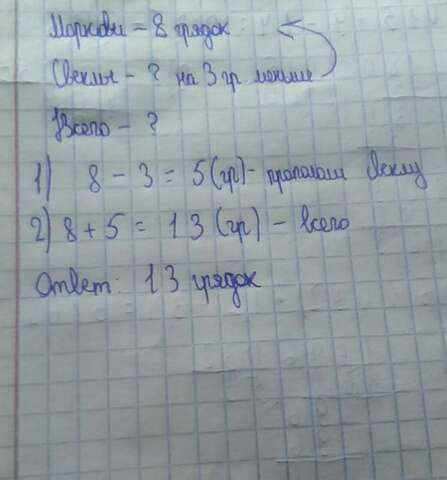 Моркови = 8 грядок
Свеклы - ? на 3 гр меньше
Всего - ?
1) 8 - 3 = 5 (гр) - пропололи свеклу
2) 8 + 5 = 13 (гр) - всего
Ответ: 13 грядок